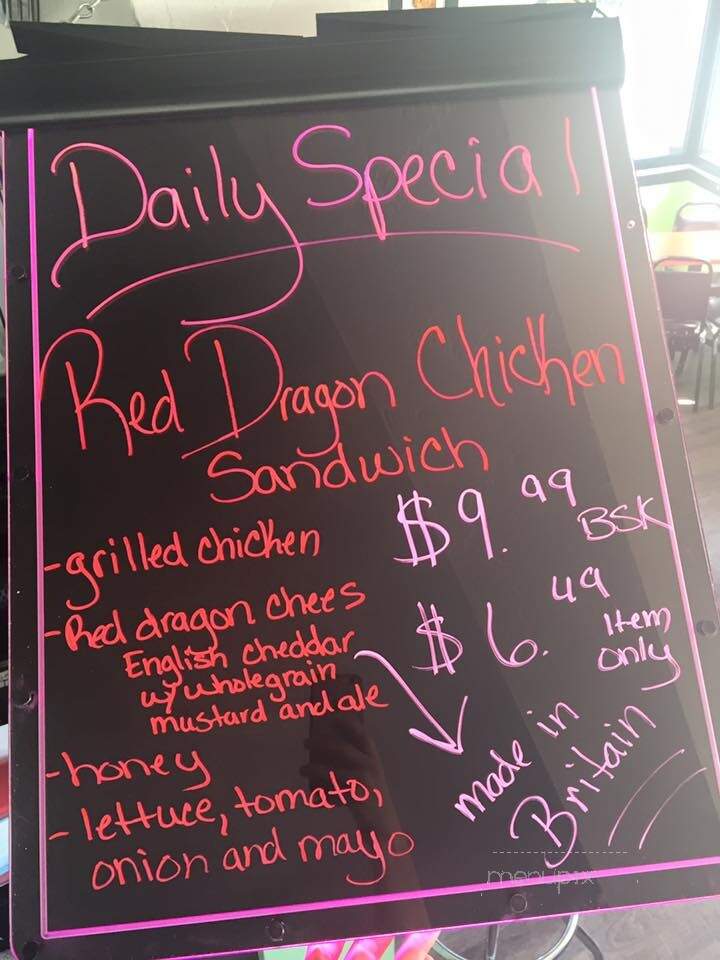 Daily Special
Red Dragon Chicken
Sandwich
-grilled chicken
$9.99
BSK
-Red dragon chees
English cheddar
w/ wholegrain
mustard and ale
$6.49
Item
only
made in
Britain
-honey
- lettuce, tomato,
onion and mayo
menupix